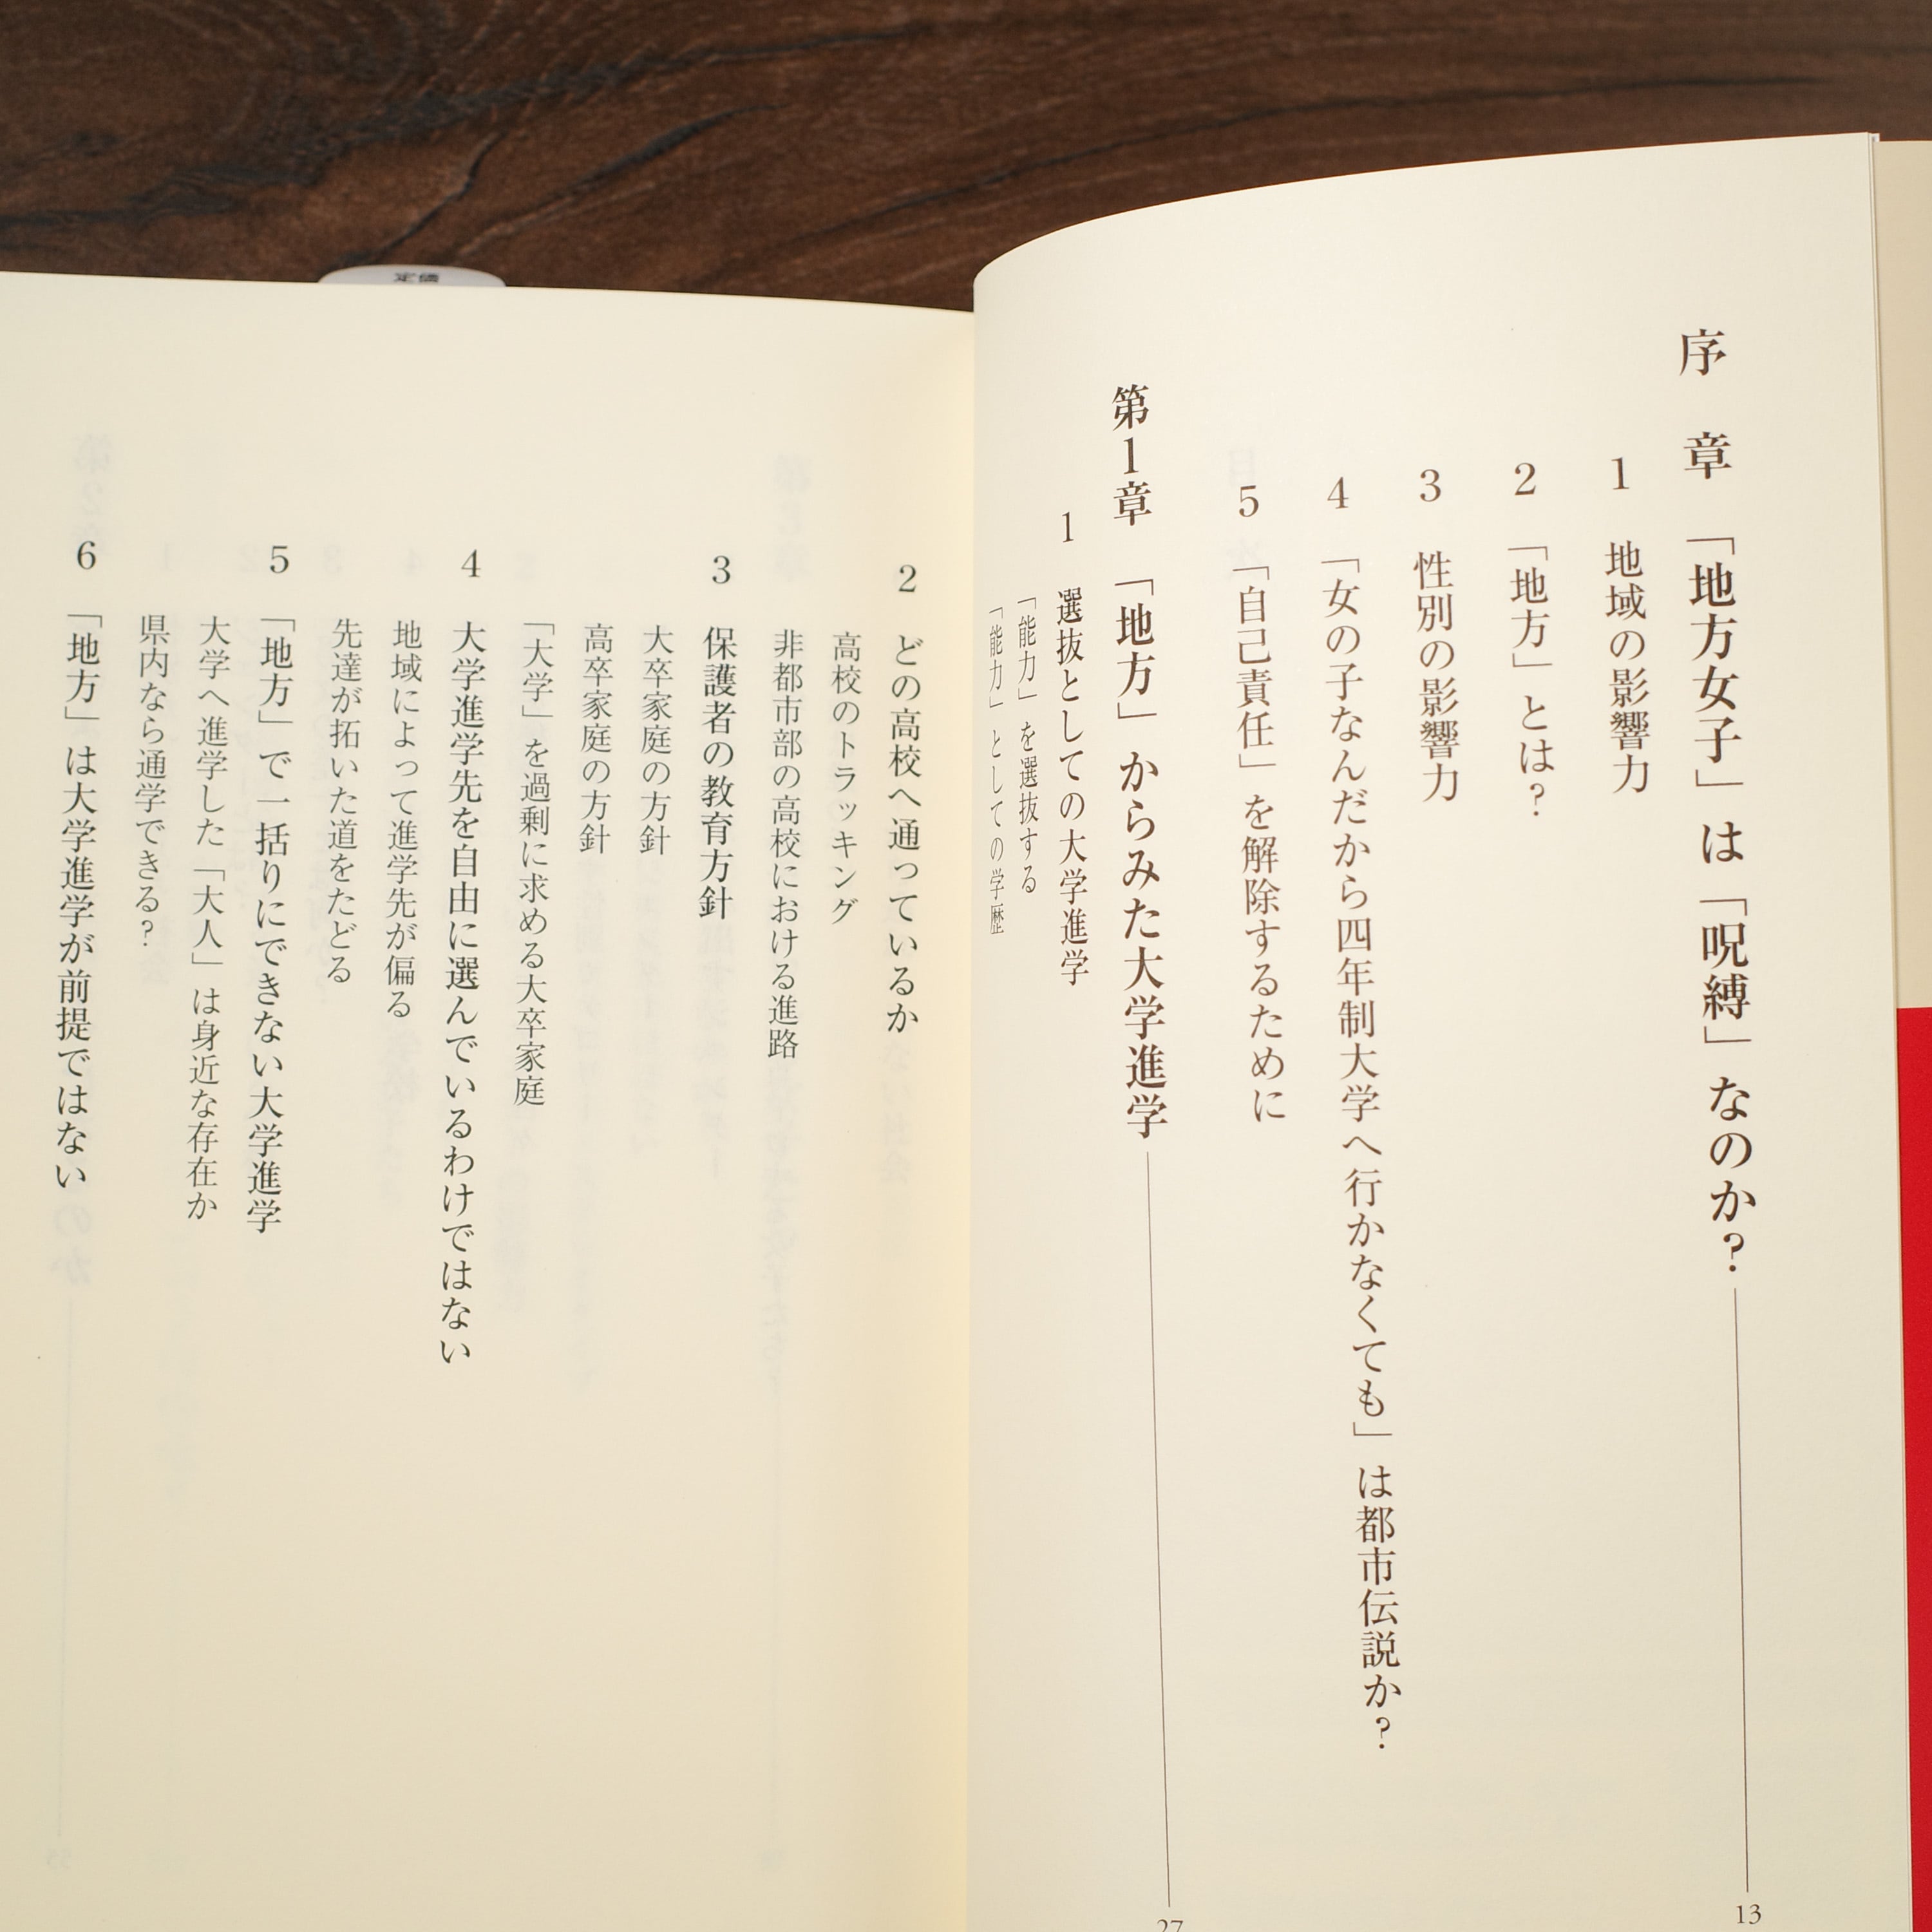 序　章　「地方女子」は「呪縛」なのか？ 13
1　地域の影響力
2　「地方」とは？
3　性別の影響力
4　「女の子なんだから四年制大学へ行かなくても」は都市伝説か？
5　「自己責任」を解除するために
第1章　「地方」からみた大学進学 27
1　選抜としての大学進学
「能力」を選抜する
「能力」としての学歴
2　どの高校へ通っているか
高校のトラッキング
非都市部の高校における進路
3　保護者の教育方針
大卒家庭の方針
高卒家庭の方針
「大学」を過剰に求める大卒家庭
4　大学進学先を自由に選んでいるわけではない
地域によって進学先が偏る
先達が拓いた道をたどる
5　「地方」で一括りにできない大学進学
大学へ進学した「大人」は身近な存在か
県内なら通学できる？
6　「地方」は大学進学が前提ではない
定価